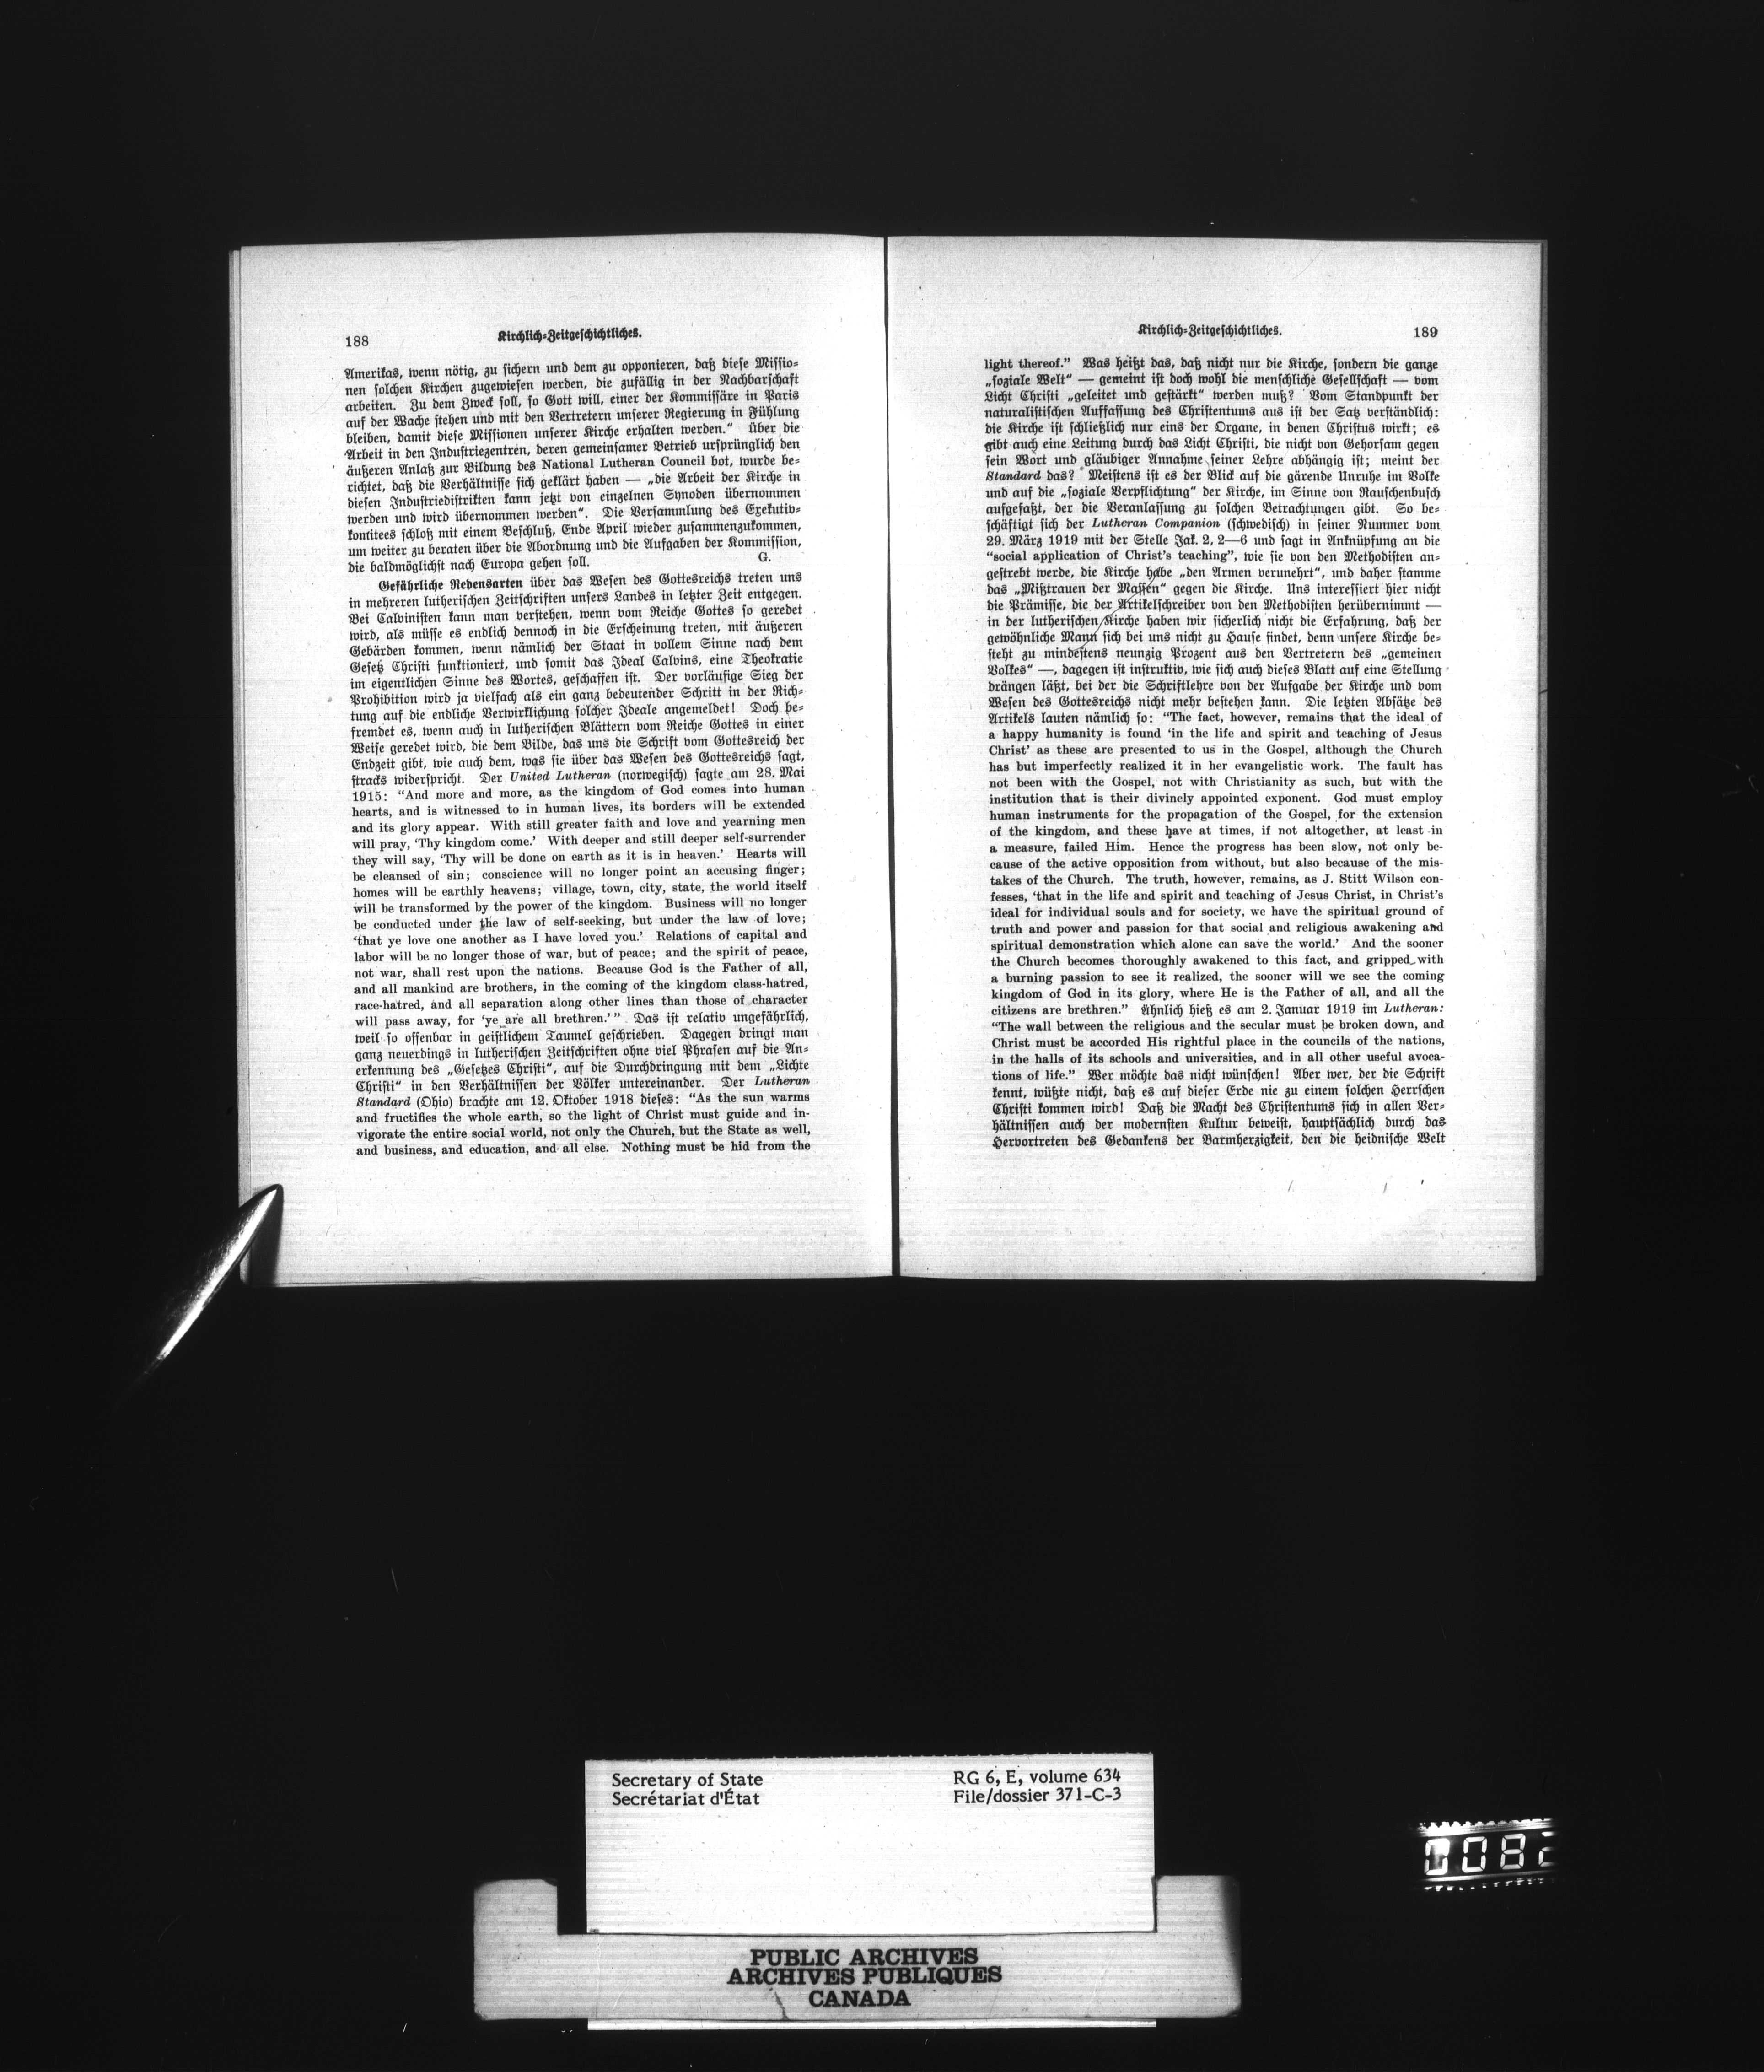 188
Kirchlich-Zeitgeschichtliches.
Amerikas, wenn nötig, zu sichern und dem zu opponieren, daß diese Missio-
nen solchen Kirchen zugewiesen werden, die zufällig in der Nachbarschaft
arbeiten. Zu dem Zweck soll, so Gott will, einer der Kommissäre in Paris
auf der Wache stehen und mit den Vertretern unserer Regierung in Fühlung
bleiben, damit diese Missionen unserer Kirche erhalten werden.“ Über die
Arbeit in den Industriezentren, deren gemeinsamer Betrieb ursprünglich den
äußeren Anlaß zur Bildung des National Lutheran Council bot, wurde be-
richtet, daß die Verhältnisse sich geklärt haben — „die Arbeit der Kirche in
diesen Industriedistrikten kann jetzt von einzelnen Synoden übernommen
werden und wird übernommen werden“. Die Versammlung des Exekutiv-
komitees schloß mit einem Beschluß, Ende April wieder zusammenzukommen,
um weiter zu beraten über die Abordnung und die Aufgaben der Kommission,
die baldmöglichst nach Europa gehen soll. G.
Gefährliche Redensarten über das Wesen des Gottesreichs treten uns
in mehreren lutherischen Zeitschriften unsers Landes in letzter Zeit entgegen.
Bei Calvinisten kann man verstehen, wenn vom Reiche Gottes so geredet
wird, als müsse es endlich dennoch in die Erscheinung treten, mit äußeren
Gebärden kommen, wenn nämlich der Staat in vollem Sinne nach dem
Gesetz Christi funktioniert, und somit das Ideal Calvins, eine Theokratie
im eigentlichen Sinne des Wortes, geschaffen ist. Der vorläufige Sieg der
Prohibition wird ja vielfach als ein ganz bedeutender Schritt in der Rich-
tung auf die endliche Verwirklichung solcher Ideale angemeldet! Doch be-
fremdet es, wenn auch in lutherischen Blättern vom Reiche Gottes in einer
Weise geredet wird, die dem Bilde, das uns die Schrift vom Gottesreich der
Endzeit gibt, wie auch dem, was sie über das Wesen des Gottesreichs sagt,
stracks widerspricht. Der United Lutheran (norwegisch) sagte am 28. Mai
1915: “And more and more, as the kingdom of God comes into human
hearts, and is witnessed to in human lives, its borders will be extended
and its glory appear. With still greater faith and love and yearning men
will pray, ‘Thy kingdom come.’ With deeper and still deeper self-surrender
they will say, ‘Thy will be done on earth as it is in heaven.’ Hearts will
be cleansed of sin; conscience will no longer point an accusing finger;
homes will be earthly heavens; village, town, city, state, the world itself
will be transformed by the power of the kingdom. Business will no longer
be conducted under the law of self-seeking, but under the law of love;
‘that ye love one another as I have loved you.’ Relations of capital and
labor will be no longer those of war, but of peace; and the spirit of peace,
not war, shall rest upon the nations. Because God is the Father of all,
and all mankind are brothers, in the coming of the kingdom class-hatred,
race-hatred, and all separation along other lines than those of character
will pass away, for ‘ye are all brethren.’” Das ist relativ ungefährlich,
weil so offenbar in geistlichem Taumel geschrieben. Dagegen dringt man
ganz neuerdings in lutherischen Zeitschriften ohne viel Phrasen auf die An-
erkennung des „Gesetzes Christi“, auf die Durchdringung mit dem „Lichte
Christi“ in den Verhältnissen der Völker untereinander. Der Lutheran
Standard (Ohio) brachte am 12. Oktober 1918 dieses: “As the sun warms
and fructifies the whole earth, so the light of Christ must guide and in-
vigorate the entire social world, not only the Church, but the State as well,
and business, and education, and all else. Nothing must be hid from the
Kirchlich-Zeitgeschichtliches.
189
light thereof.” Was heißt das, daß nicht nur die Kirche, sondern die ganze
„soziale Welt“ — gemeint ist doch wohl die menschliche Gesellschaft — vom
Licht Christi „geleitet und gestärkt“ werden muß? Vom Standpunkt der
naturalistischen Auffassung des Christentums aus ist der Satz verständlich:
die Kirche ist schließlich nur eins der Organe, in denen Christus wirkt; es
gibt auch eine Leitung durch das Licht Christi, die nicht von Gehorsam gegen
sein Wort und gläubiger Annahme seiner Lehre abhängig ist; meint der
Standard das? Meistens ist es der Blick auf die gärende Unruhe im Volke
und auf die „soziale Verpflichtung“ der Kirche, im Sinne von Rauschenbusch
aufgefaßt, der die Veranlassung zu solchen Betrachtungen gibt. So be-
schäftigt sich der Lutheran Companion (schwedisch) in seiner Nummer vom
29. März 1919 mit der Stelle Jak. 2, 2—6 und sagt in Anknüpfung an die
“social application of Christ's teaching”, wie sie von den Methodisten an-
gestrebt werde, die Kirche habe „den Armen verunehrt“, und daher stamme
das „Mißtrauen der Massen“ gegen die Kirche. Uns interessiert hier nicht
die Prämisse, die der Artikelschreiber von den Methodisten herübernimmt —
in der lutherischen Kirche haben wir sicherlich nicht die Erfahrung, daß der
gewöhnliche Mann sich bei uns nicht zu Hause findet, denn unsere Kirche be-
steht zu mindestens neunzig Prozent aus den Vertretern des „gemeinen
Volkes“ —, dagegen ist instruktiv, wie sich auch dieses Blatt auf eine Stellung
drängen läßt, bei der die Schriftlehre von der Aufgabe der Kirche und vom
Wesen des Gottesreichs nicht mehr bestehen kann. Die letzten Absätze des
Artikels lauten nämlich so: “The fact, however, remains that the ideal of
a happy humanity is found ‘in the life and spirit and teaching of Jesus
Christ’ as these are presented to us in the Gospel, although the Church
has but imperfectly realized it in her evangelistic work. The fault has
not been with the Gospel, not with Christianity as such, but with the
institution that is their divinely appointed exponent. God must employ
human instruments for the propagation of the Gospel, for the extension
of the kingdom, and these have at times, if not altogether, at least in
a measure, failed Him. Hence the progress has been slow, not only be-
cause of the active opposition from without, but also because of the mis-
takes of the Church. The truth, however, remains, as J. Stitt Wilson con-
fesses, ‘that in the life and spirit and teaching of Jesus Christ, in Christ's
ideal for individual souls and for society, we have the spiritual ground of
truth and power and passion for that social and religious awakening and
spiritual demonstration which alone can save the world.’ And the sooner
the Church becomes thoroughly awakened to this fact, and gripped with
a burning passion to see it realized, the sooner will we see the coming
kingdom of God in its glory, where He is the Father of all, and all the
citizens are brethren.” Ähnlich hieß es am 2. Januar 1919 im Lutheran:
“The wall between the religious and the secular must be broken down, and
Christ must be accorded His rightful place in the councils of the nations,
in the halls of its schools and universities, and in all other useful avoca-
tions of life.” Wer möchte das nicht wünschen! Aber wer, der die Schrift
kennt, wüßte nicht, daß es auf dieser Erde nie zu einem solchen Herrschen
Christi kommen wird! Daß die Macht des Christentums sich in allen Ver-
hältnissen auch der modernsten Kultur beweist, hauptsächlich durch das
Hervortreten des Gedankens der Barmherzigkeit, den die heidnische Welt
Secretary of State
Secrétariat d'État
RG 6, E, volume 634
File/dossier 371-C-3
008
PUBLIC ARCHIVES
ARCHIVES PUBLIQUES
CANADA